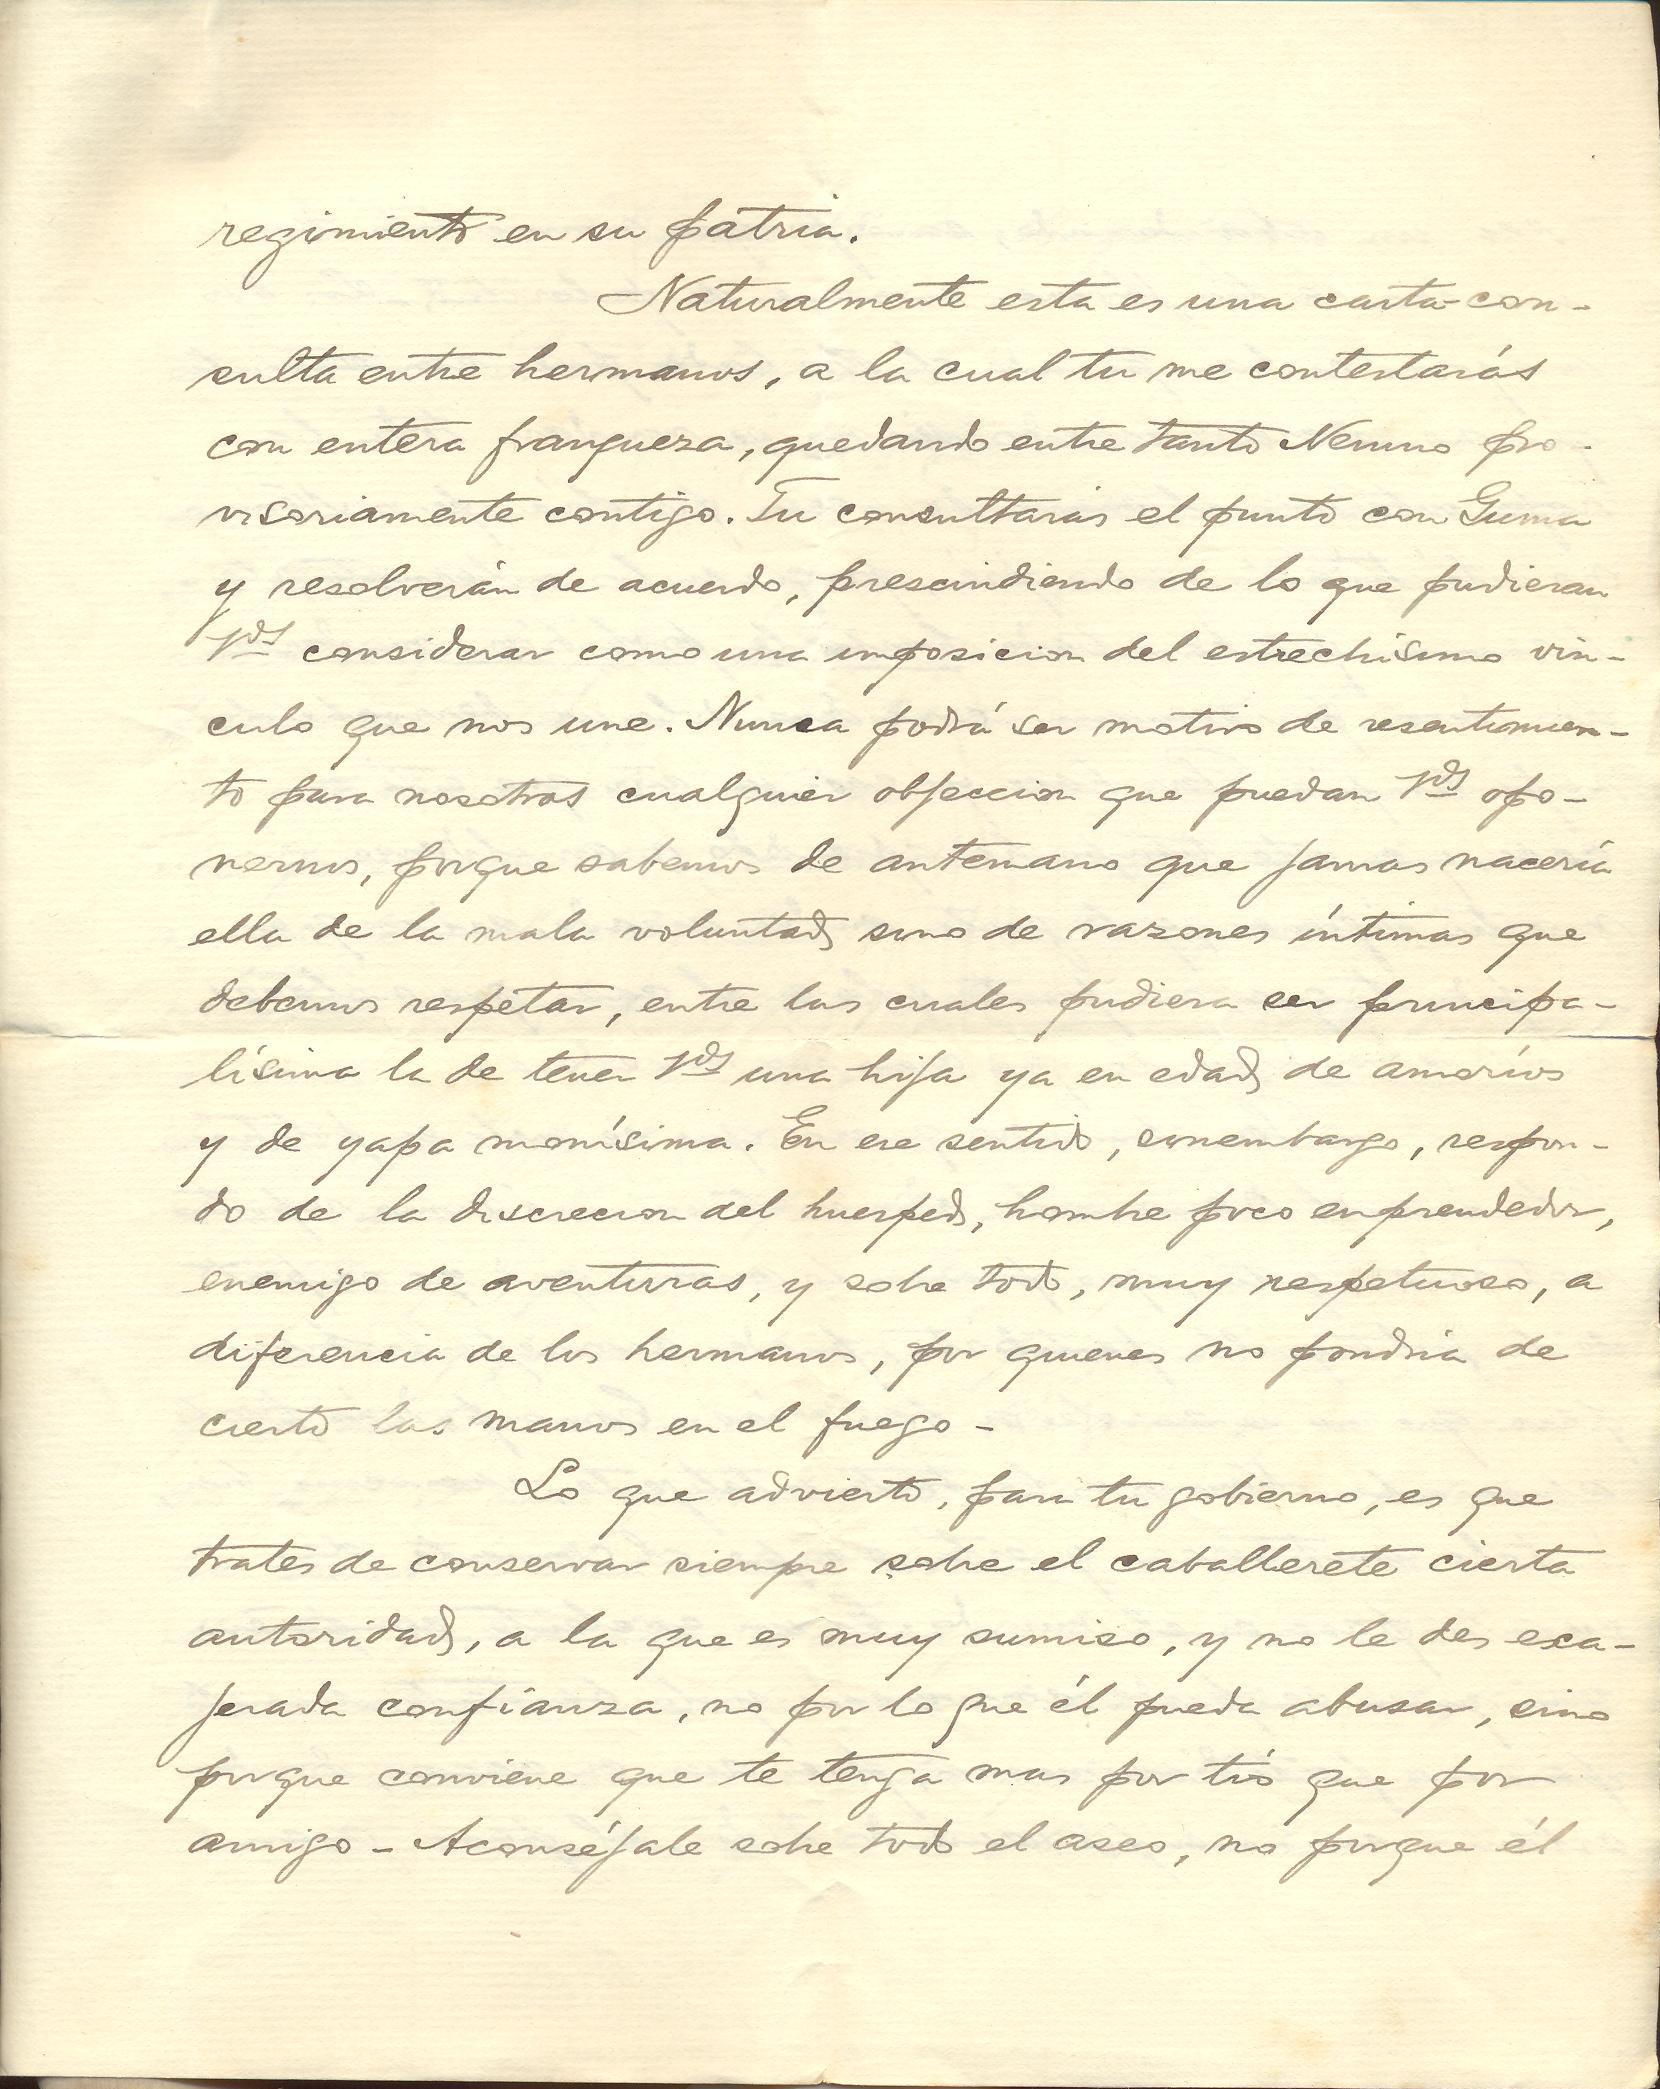 regimiento en su pátria.
Naturalmente esta es una carta-con-
sulta entre hermanos, a la cual tu me contestarás
con entera franqueza, quedando entre tanto Nenuno pro-
visoriamente contigo. Tu consultarás el punto con Guma
y resolverán de acuerdo, prescindiendo de lo que pudieran
Vds considerar como una imposicion del estrechísimo vin-
culo que nos une. Nunca podrá ser motivo de resentimien-
to para nosotros cualquier objeccion que puedan Vds opo-
nernos, porque sabemos de antemano que jamas naceria
ella de la mala voluntad, sino de razones íntimas que
debemos respetar, entre las cuales pudiera ser principa-
lísima la de tener Vds una hija ya en edad de amoríos
y de yapa monísima. En ese sentido, sinembargo, respon-
do de la discrecion del huesped, hombre poco emprendedor,
enemigo de aventuras, y sobre todo, muy respetuoso, a
diferencia de los hermanos, por quienes no pondria de
cierto las manos en el fuego -
Lo que advierto, para tu gobierno, es que
trates de conservar siempre sobre el caballerete cierta
autoridad, a la que es muy sumiso, y no le des exa-
jerada confianza, no por lo que él pueda abusar, sino
porque conviene que te tenga mas por tío que por
amigo - Aconséjale sobre todo el aseo, no porque él